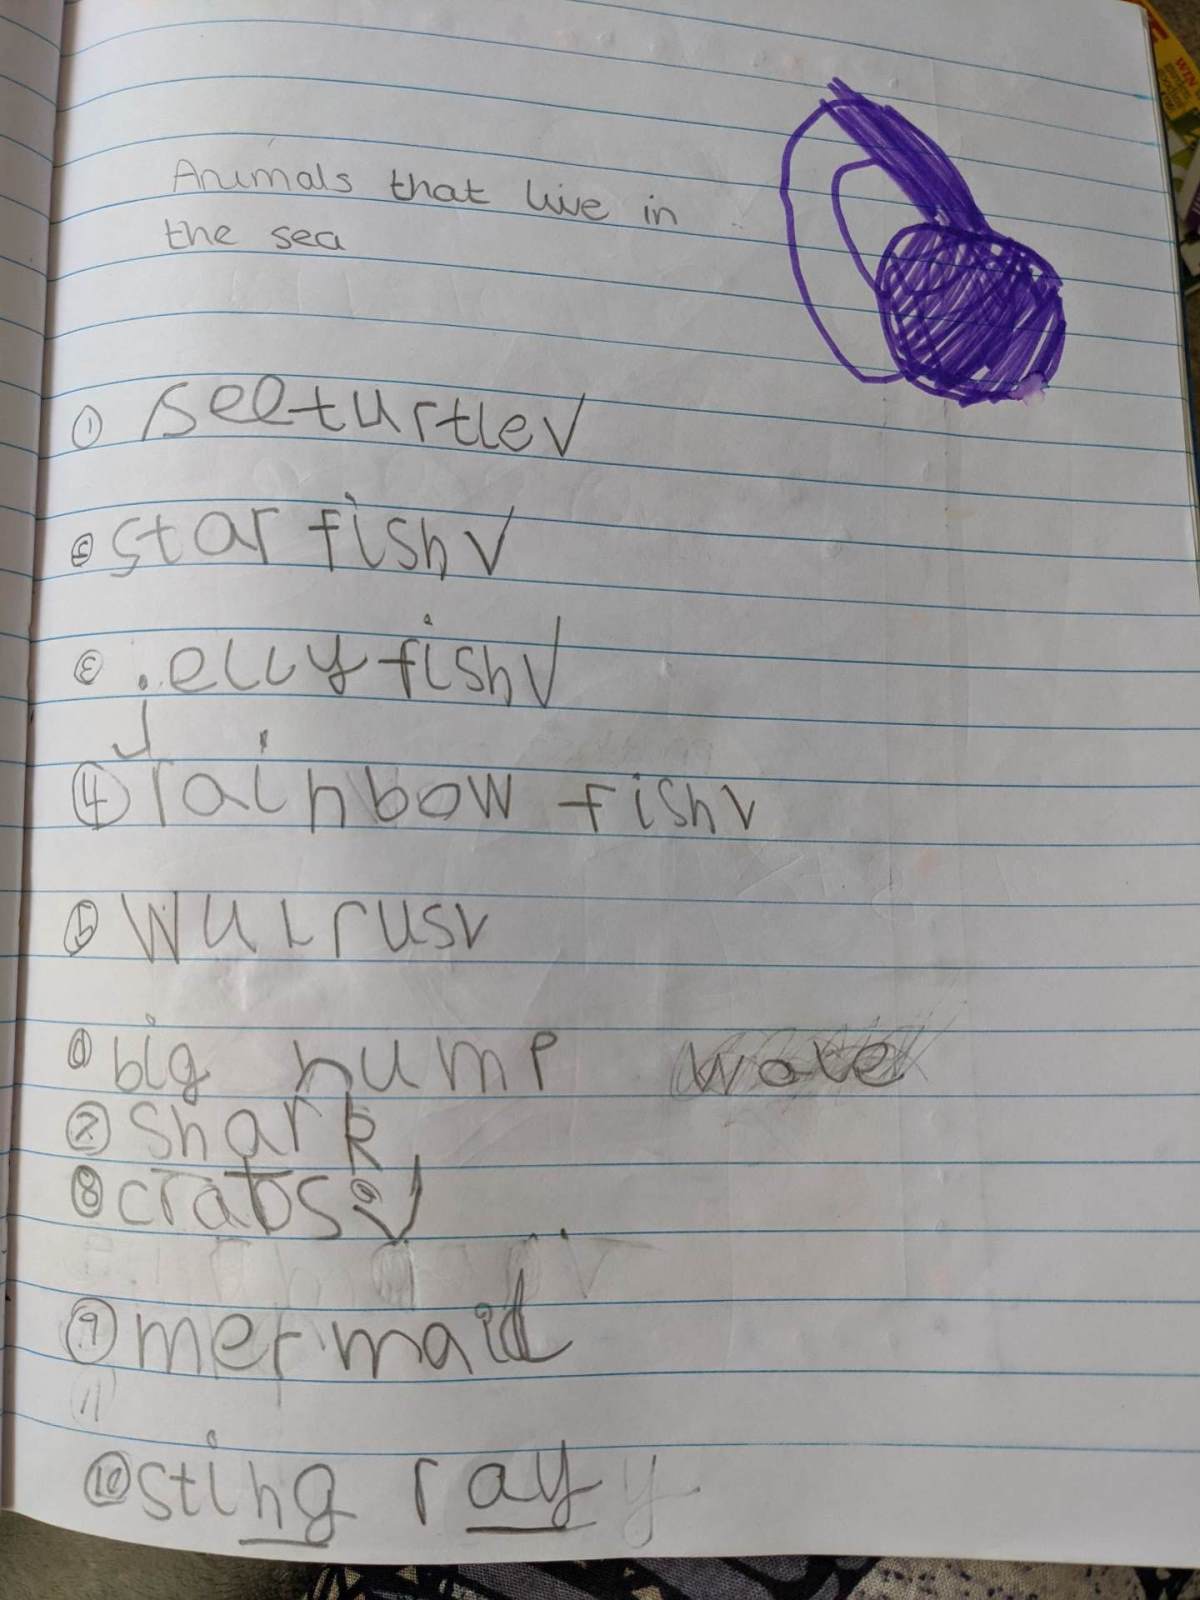 Animals that live in
the sea
① seeturtle✓
② star fish✓
③ jellyfish✓
④ rainbow fish✓
⑤ wulrus✓
⑥ big hump wale
⑦ shark
⑧ crabs ✓
⑨ mermaid
⑩ sting ray y